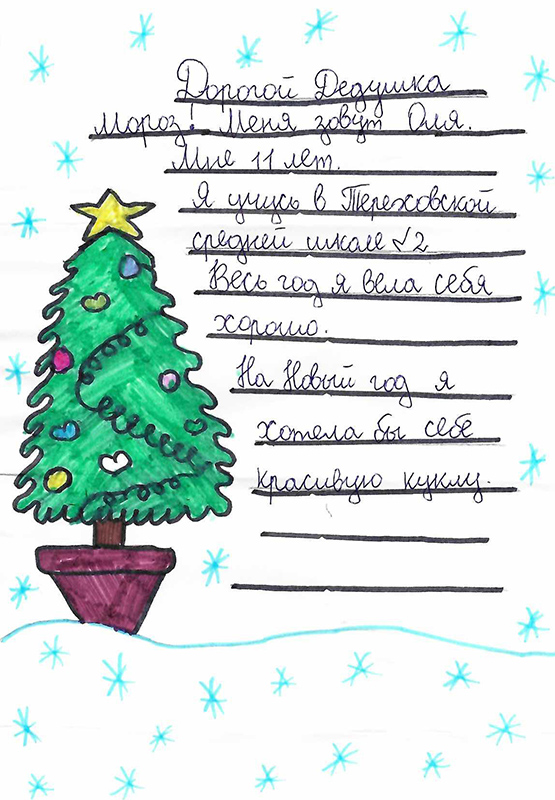 Дорогой Дедушка
Мороз! Меня зовут Оля.
Мне 11 лет.
Я учусь в Тереховской
средней школе √2
Весь год я вела себя
хорошо.
На Новый год я
хотела бы себе
красивую куклу.